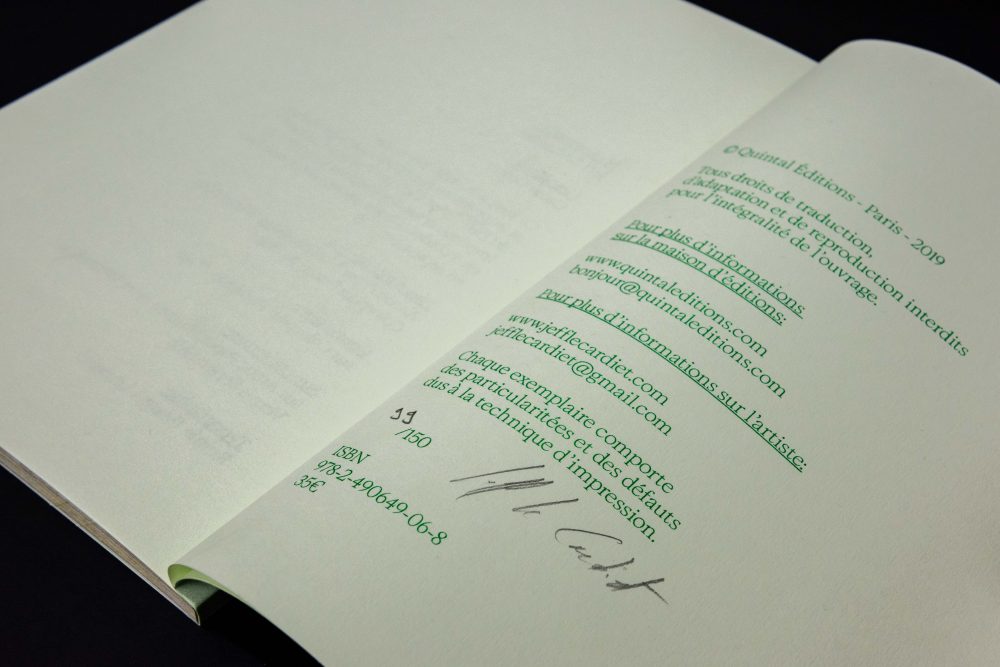 © Quintal Éditions - Paris - 2019
Tous droits de traduction,
d'adaptation et de reproduction interdits
pour l'intégralité de l'ouvrage.
Pour plus d'informations
sur la maison d'éditions:
www.quintaleditions.com
bonjour@quintaleditions.com
Pour plus d'informations sur l'artiste:
www.jefflecardiet.com
jefflecardiet@gmail.com
Chaque exemplaire comporte
des particularitées et des défauts
dus à la technique d'impression.
/150
ISBN
978-2-490649-06-8
35€